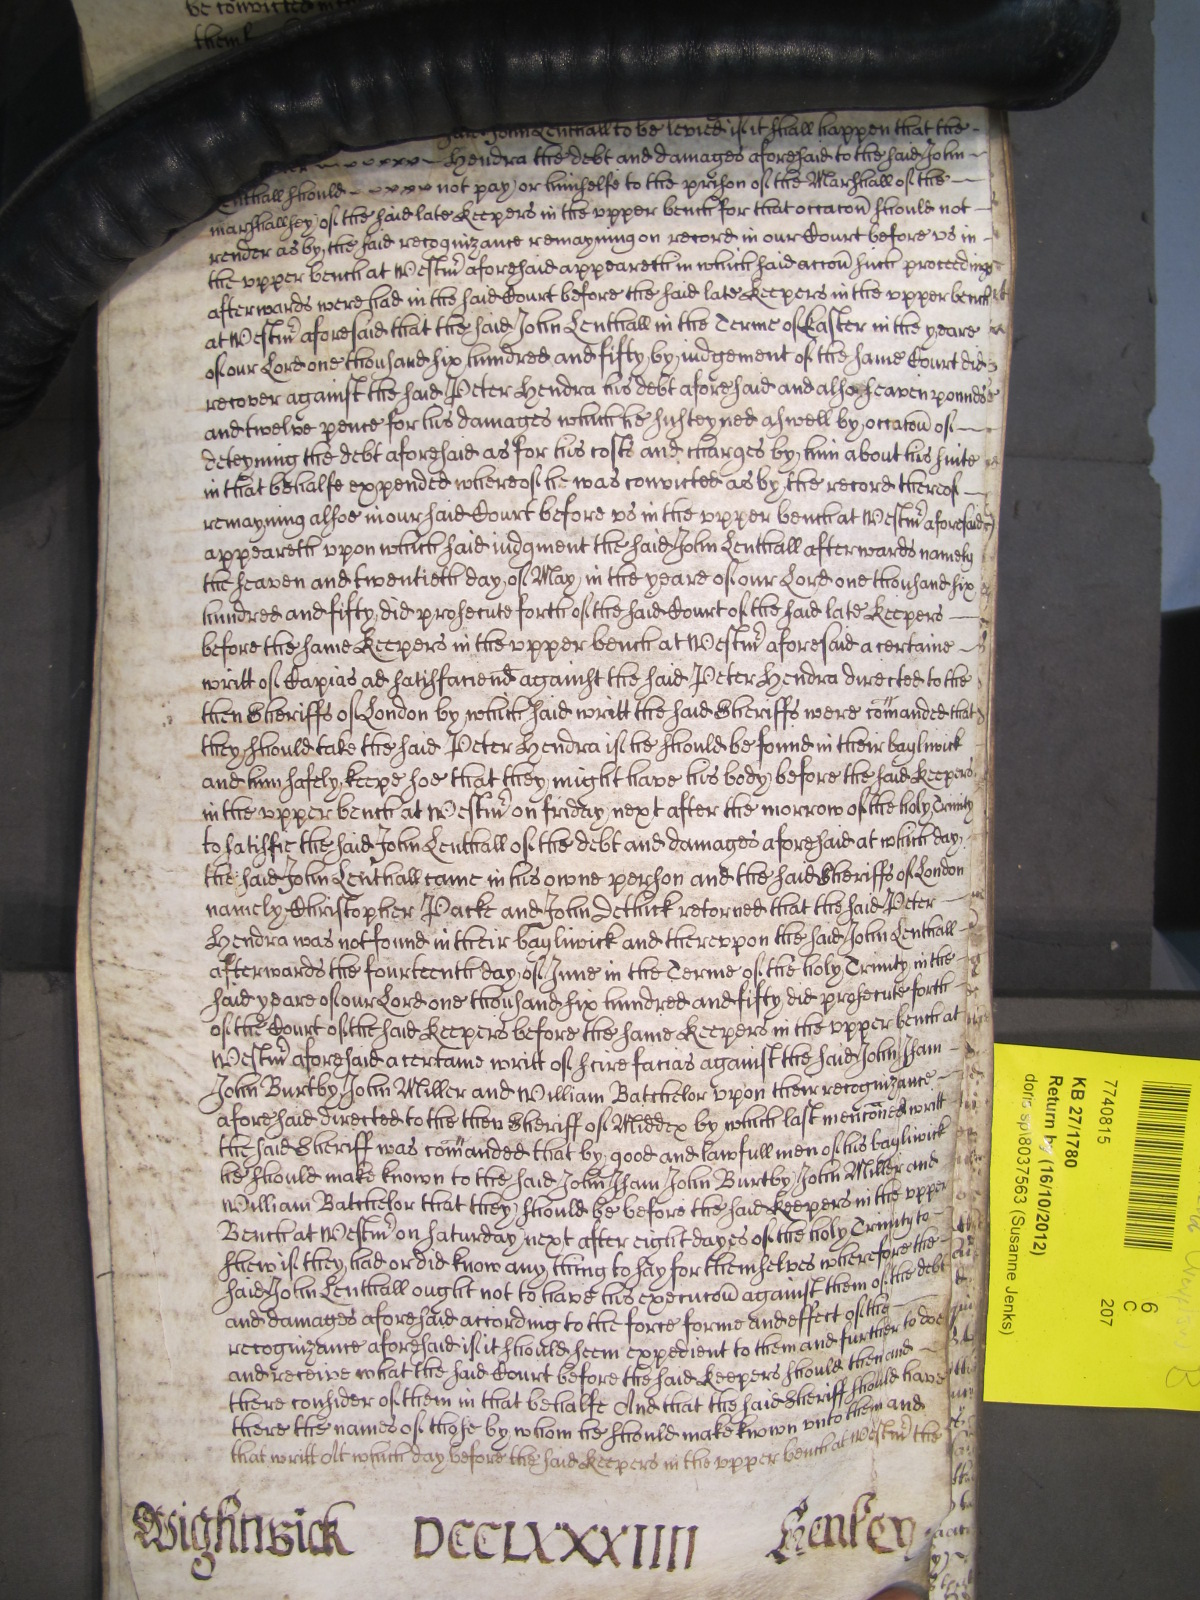 be convicted in
them
said John Lenthall to be levied if it shall happen that the
Hendra the debt and damages aforesaid to the said John
Lenthall should not pay, or himselfe to the prison of the Marshall of the
marshallsey of the said late Keepers in the upper bench for that occacoñ should not
render as by the said recognizance remayning on record in our Court before vs in
the vpper bench at Westmr aforesaid appeareth in which said accoñ such proceedings
afterwards were had in the said Court before the said late Keepers in the vpper bench
at Westmr aforesaid that the said John Lenthall in the Terme of Easter in the yeare
of our Lord one thousand six hundred and fifty by judgement of the same Court did
recover against the said Peter Hendra his debt aforesaid and also seaven pounds
and twelve pence for his damages which he susteyned aswell by occacoñ of
deteyning the debt aforesaid as for his costs and charges by him about his suite
in that behalfe expended whereof he was convicted as by the record thereof
remayning alsoe in our said Court before vs in the vpper bench at Westmr aforesaid
appeareth vpon which said judgment the said John Lenthall afterwards namely
the seaven and twentieth day of May in the yeare of our Lord one thousand six
hundred and fifty did prosecute forth of the said Court of the said late Keepers
before the same Keepers in the vpper bench at Westmr aforesaid a certaine
writt of Capias ad satisfaciend against the said Peter Hendra directed to the
then Sheriffs of London by which said writt the said Sheriffs were comanded that
they should take the said Peter Hendra if he should be found in their bayliwick
and him safely keepe soe that they might have his body before the said Keepers
in the vpper bench at Westmr on friday next after the morrow of the holy Trinity
to satisfie the said John Lenthall of the debt and damages aforesaid at which day
the said John Lenthall came in his owne person and the said Sheriffs of London
namely Christopher Packe and John Dethick retorned that the said Peter
Hendra was not found in their bayliwick and therevpon the said John Lenthall
afterwards the fourteenth day of June in the Terme of the holy Trinity in the
said yeare of our Lord one thousand six hundred and fifty did prosecute forth
of the Court of the said Keepers before the same Keepers in the vpper bench at
Westmr aforesaid a certaine writt of scire facias against the said John Isam
John Burtby John Miller and William Batchelor vpon their recognizance
aforesaid directed to the then Sheriff of Middx by which last menconed writt
the said Sheriff was comanded that by good and lawfull men of his bayliwick
he should make known to the said John Isam John Burtby John Miller and
William Batchelor that they should be before the said Keepers in the vpper
Bench at Westmr on Saturday next after eight dayes of the holy Trinity to
shew if they had or did know any thing to say for themselves wherefore the
said John Lenthall ought not to have his execucoñ against them of the debt
and damages aforesaid according to the force forme and effect of the
recognizance aforesaid if it should seem expedient to them and further to doe
and receive what the said Court before the said Keepers should then and
there consider of them in that behalfe And that the said Sheriff should have
there the names of those by whom he should make known vnto them and
that writt At which day before the said Keepers in the vpper bench at Westmr the
Wightwick DCCLXXXIIII Henley
7740815
KB 27/1780
Return by (16/10/2012)
doris sp\8037563 (Susanne Jenks)
6
C
207